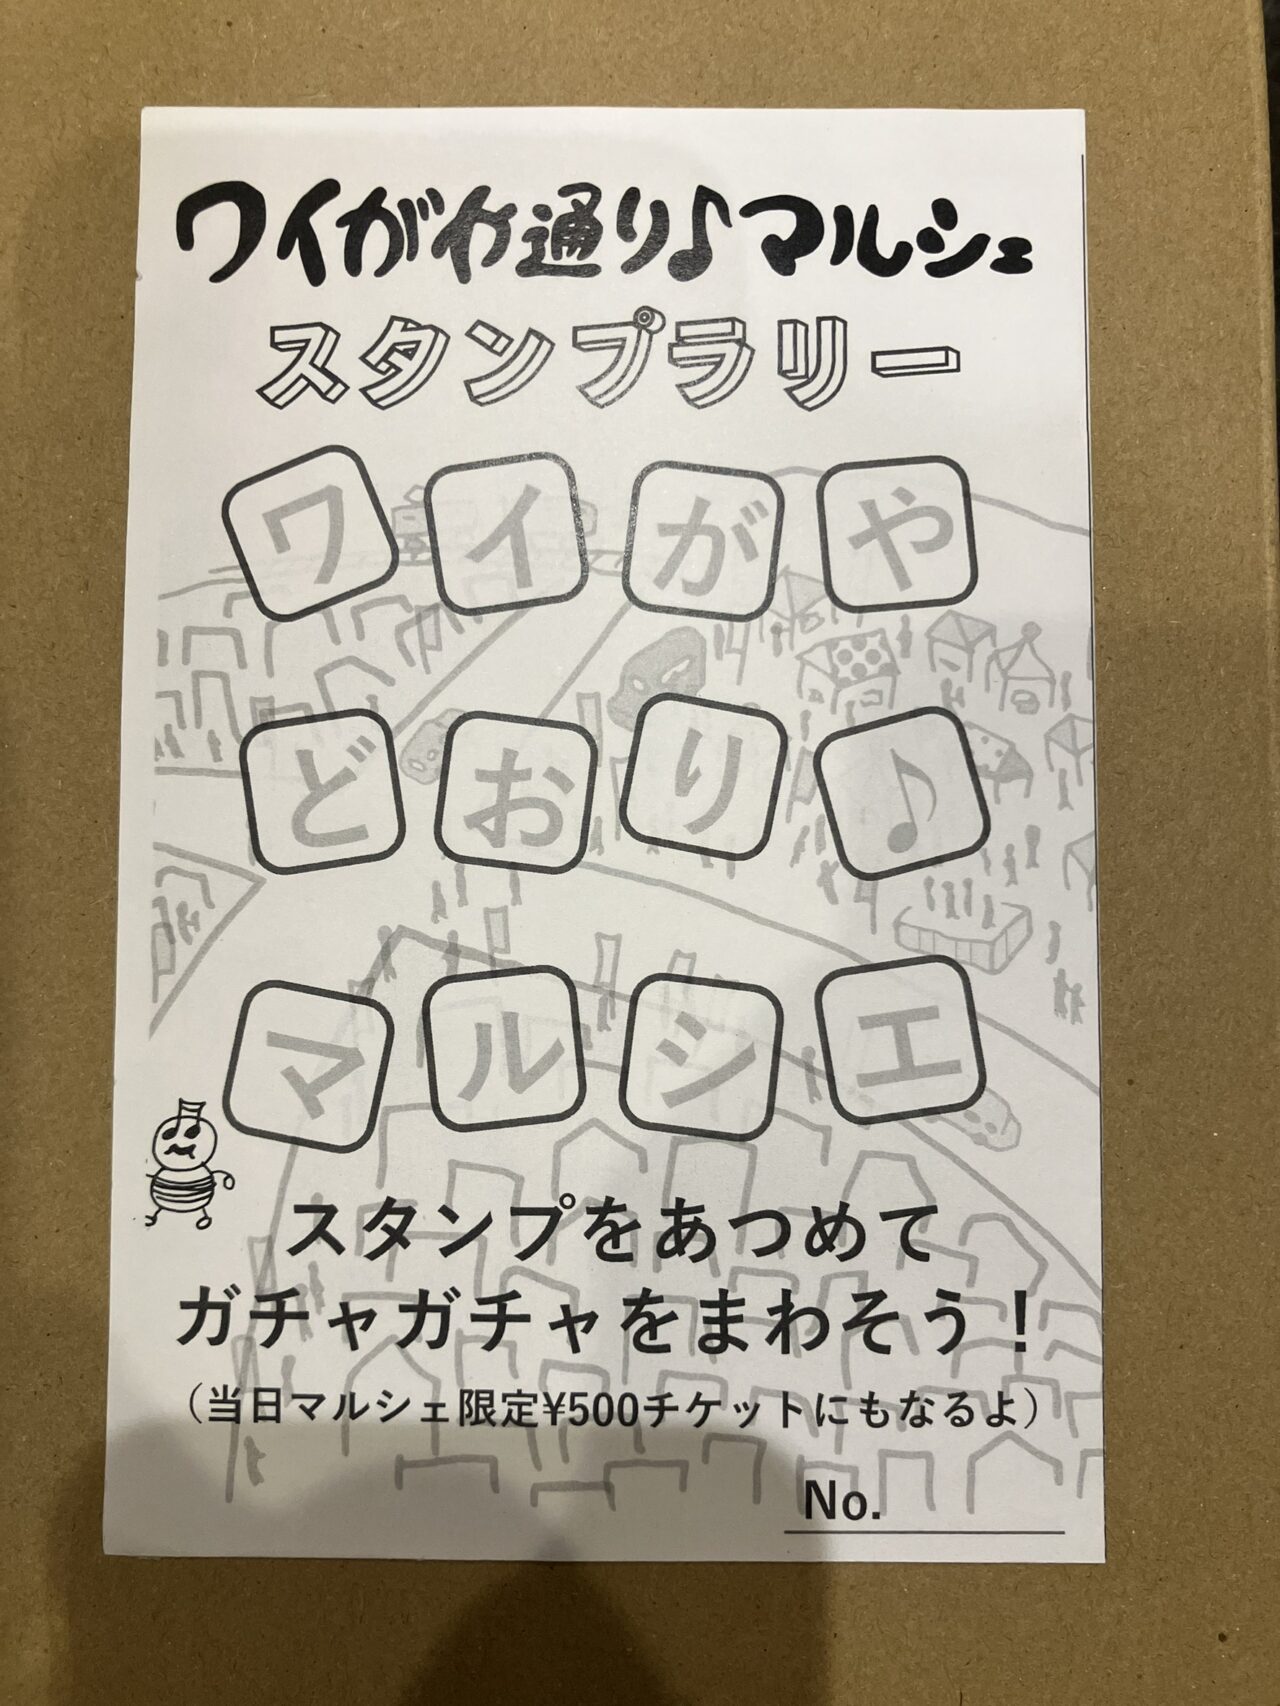 ワイがや通り♪マルシェ
スタンプラリー
ワイがや
どおり♪
マルシエ
スタンプをあつめて
ガチャガチャをまわそう！
（当日マルシェ限定¥500チケットにもなるよ）
No.